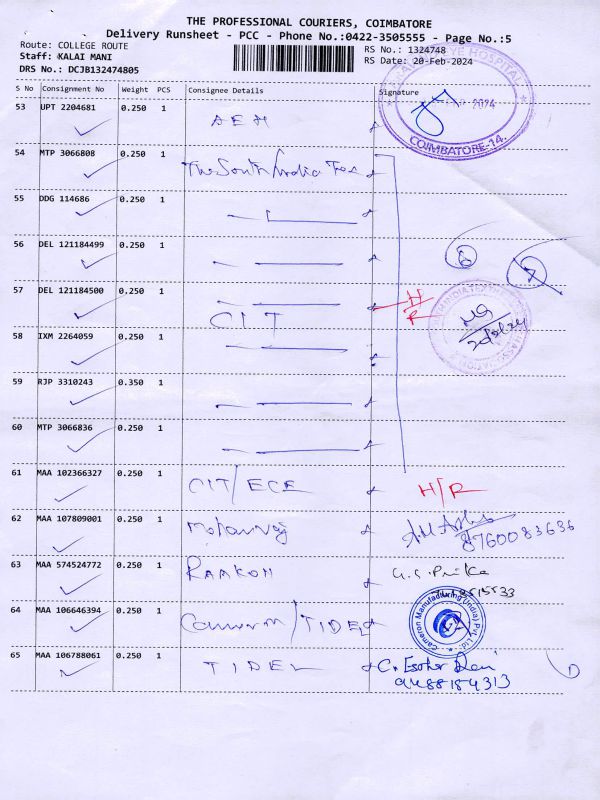 THE PROFESSIONAL COURIERS, COIMBATORE
Delivery Runsheet - PCC - Phone No.:0422-3505555 - Page No.:5
Route: COLLEGE ROUTE
Staff: KALAI MANI
DRS No.: DCJB132474805
RS No.: 1324748
RS Date: 20-Feb-2024
S No Consignment No Weight PCS Consignee Details Signature
53 UPT 2204681 0.250 1 AEH
EYE HOSPITAL
2024
COIMBATORE-14.
54 MTP 3066808 0.250 1 The South India Tex
55 DDG 114686 0.250 1
56 DEL 121184499 0.250 1
57 DEL 121184500 0.250 1 H/R
CIT
58 IXM 2264059 0.250 1
59 RJP 3310243 0.350 1
60 MTP 3066836 0.250 1
61 MAA 102366327 0.250 1 CIT/ECE H/R
62 MAA 107809001 0.250 1 Mohanraj
8760083636
63 MAA 574524772 0.250 1 RAAKOM
64 MAA 106646394 0.250 1 Cameron/TIDEL
Cameron Manufacturing (India) Pvt. Ltd.
65 MAA 106788061 0.250 1 TIDEL C. Esther Rani
9488184313